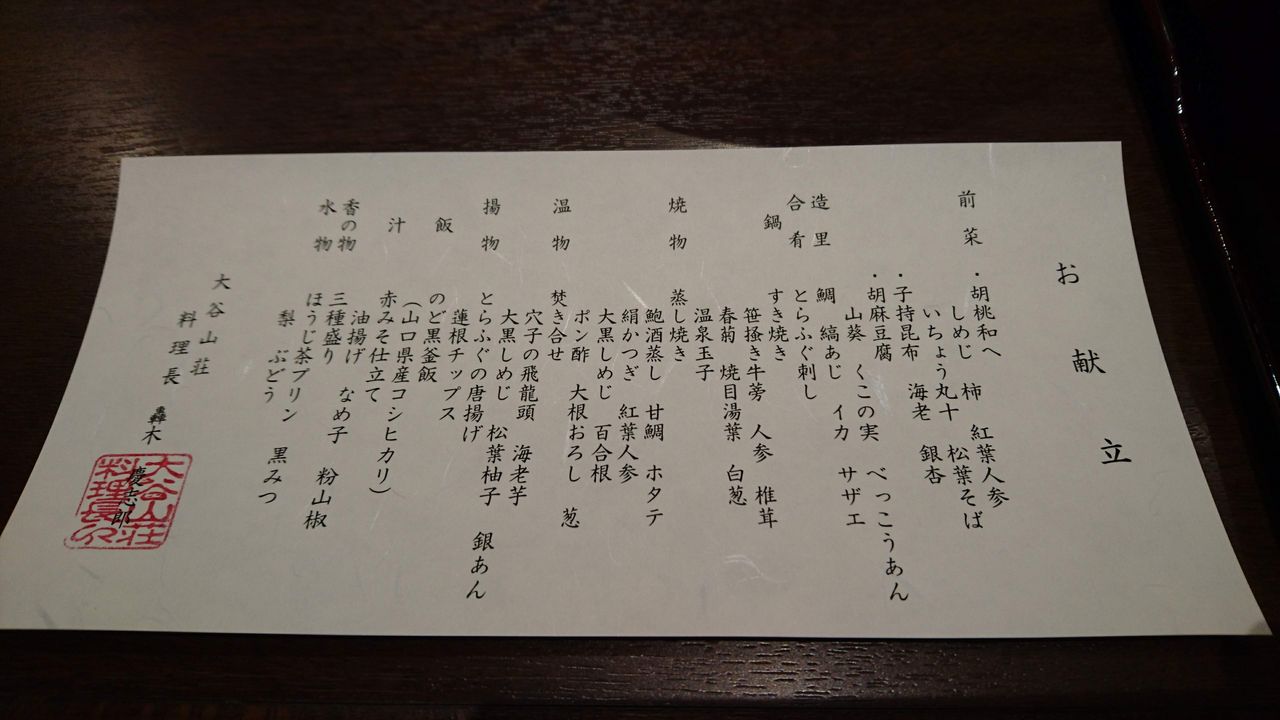 お献立
前菜 ・胡桃和へ
しめじ 柿 紅葉人参
いちょう丸十 松葉そば
・子持昆布 海老 銀杏
・胡麻豆腐
山葵 くこの実 べっこうあん
造里 鯛 縞あじ イカ サザエ
合肴 とらふぐ刺し
鍋 すき焼き
笹掻き牛蒡 人参 椎茸
春菊 焼目湯葉 白葱
温泉玉子
焼物 蒸し焼き
鮑酒蒸し 甘鯛 ホタテ
絹かつぎ 紅葉人参
大黒しめじ 百合根
ポン酢 大根おろし 葱
温物 焚き合せ
穴子の飛龍頭 海老芋
大黒しめじ 松葉柚子 銀あん
揚物 とらふぐの唐揚げ
蓮根チップス
飯 のど黒釜飯
(山口県産コシヒカリ)
汁 赤みそ仕立て
油揚げ なめ子 粉山椒
香の物 三種盛り
水物 ほうじ茶プリン
梨 ぶどう 黒みつ
大谷山荘
料理長 轟木 慶志郎
大谷山荘
料理長印